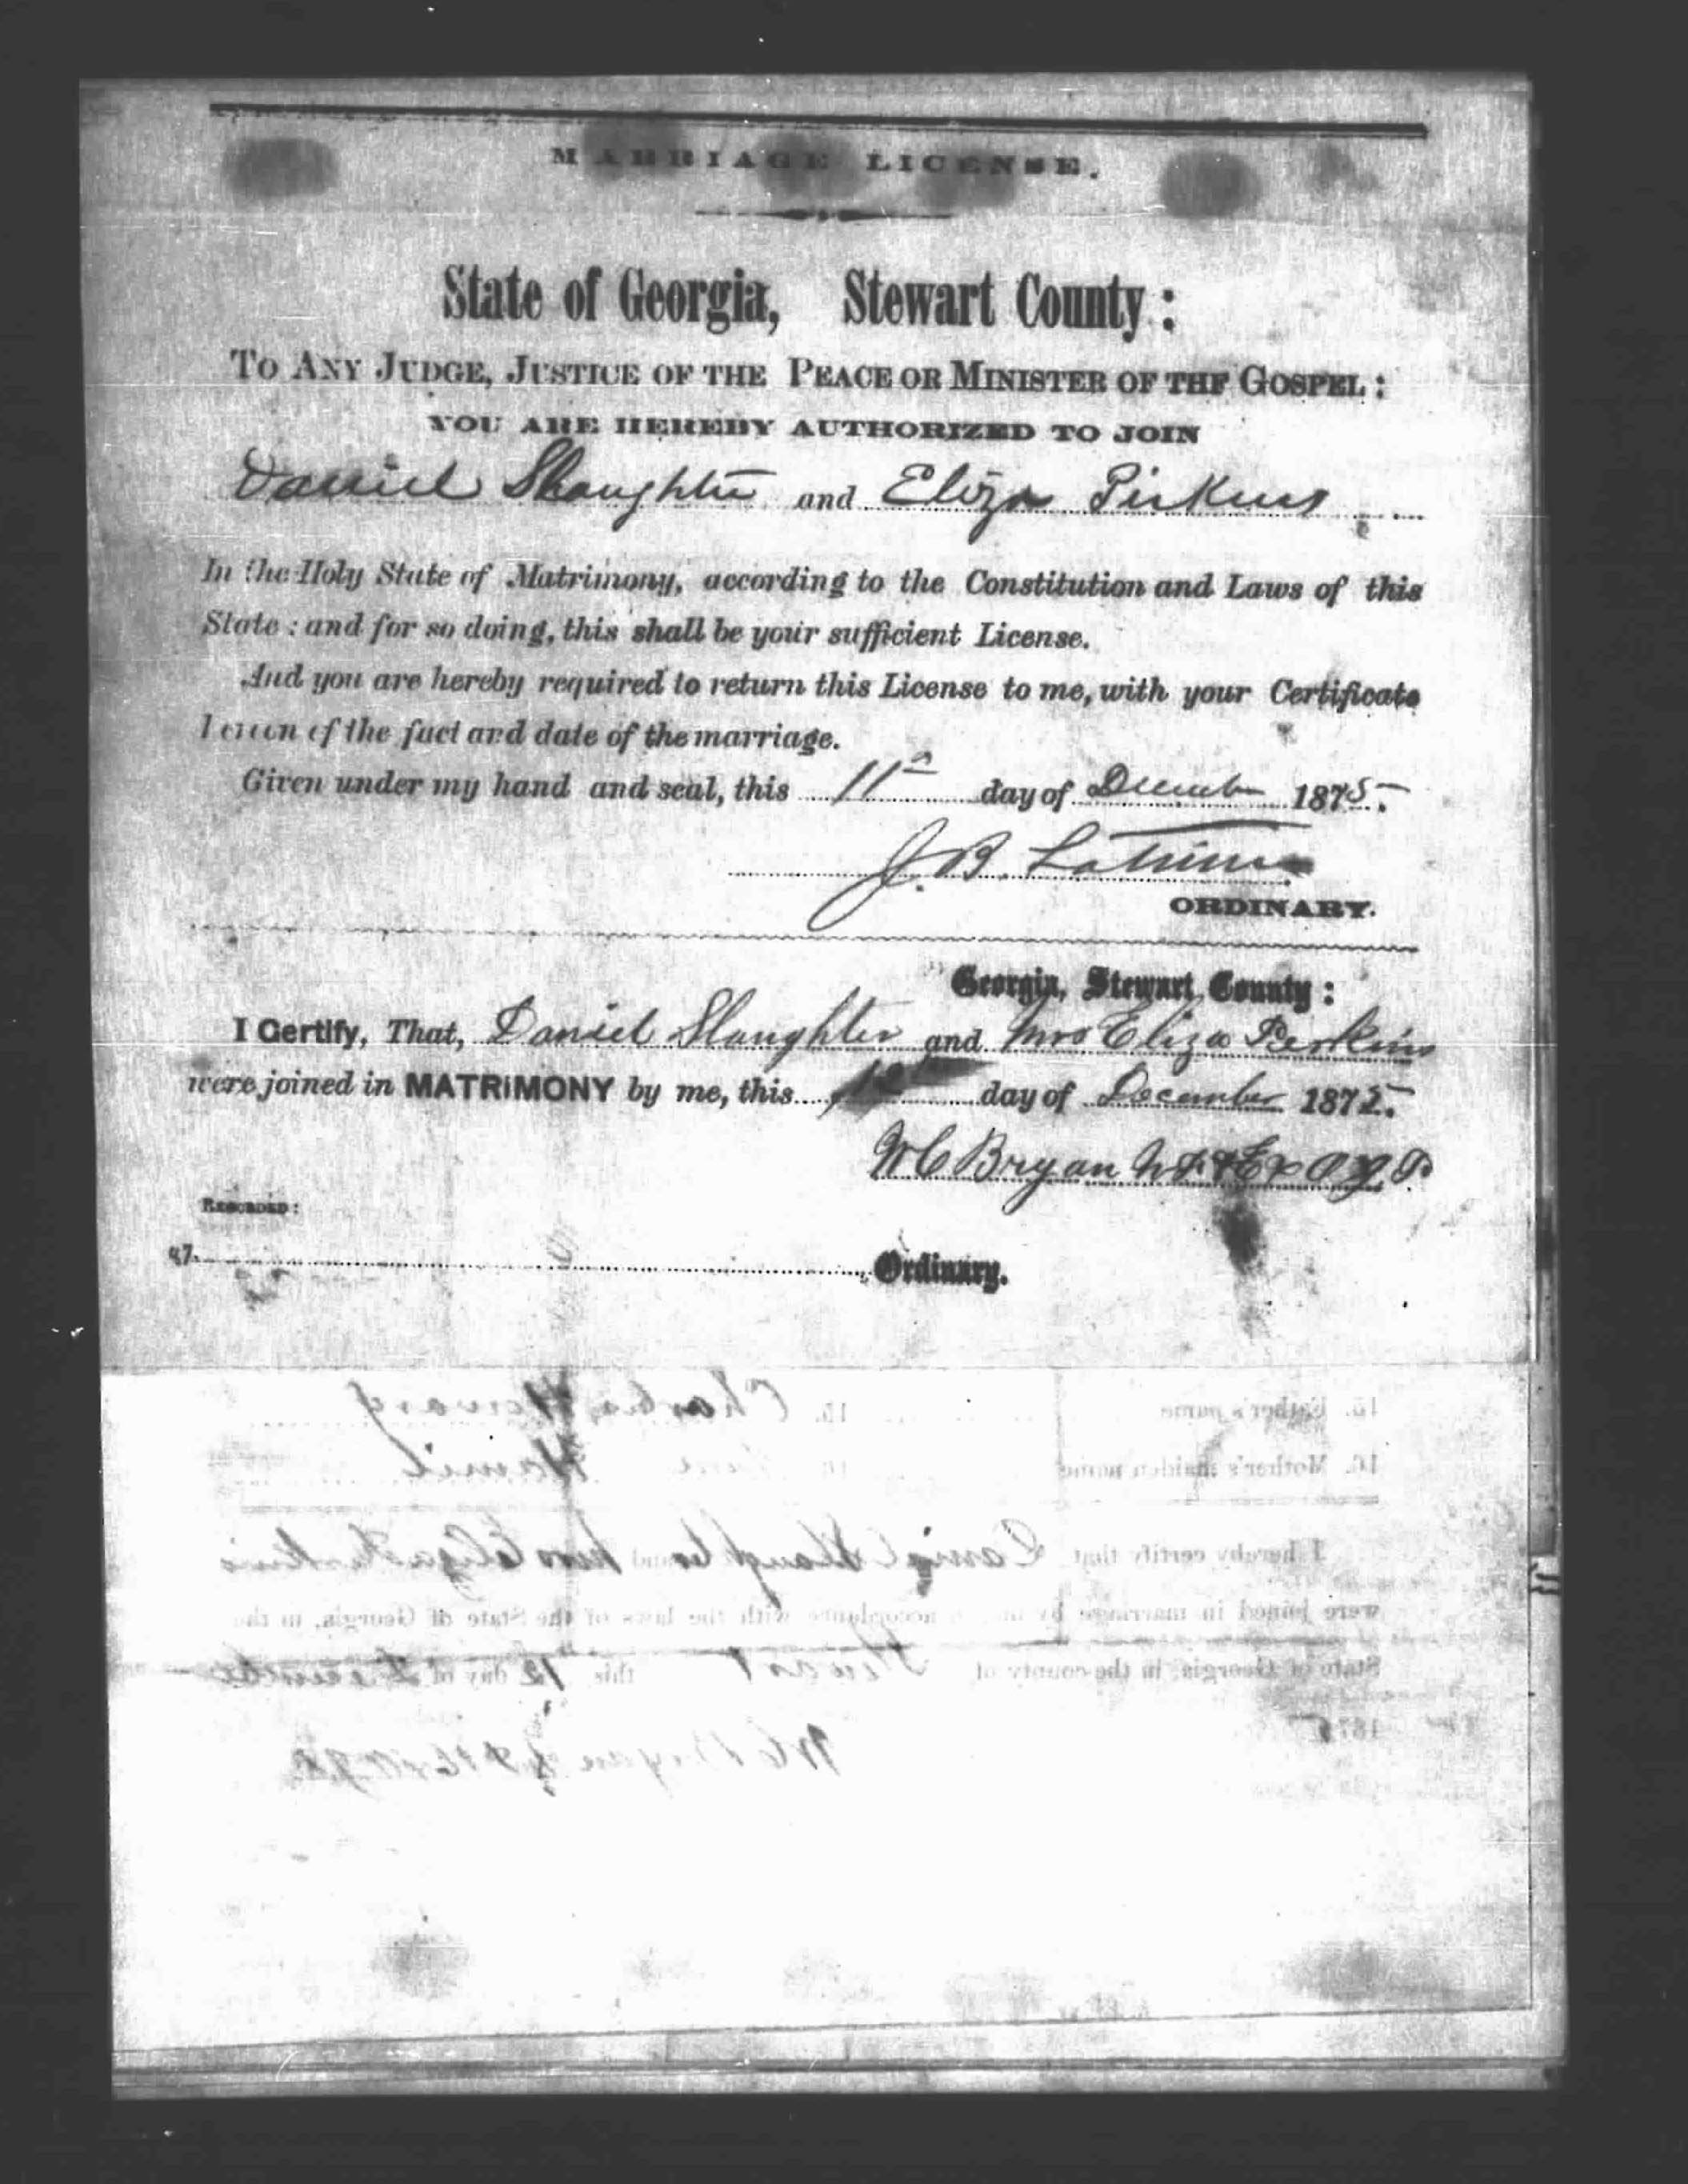 MARRIAGE LICENSE.
State of Georgia, Stewart County:
TO ANY JUDGE, JUSTICE OF THE PEACE OR MINISTER OF THE GOSPEL:
YOU ARE HEREBY AUTHORIZED TO JOIN
Daniel Slaughter and Eliza Perkins
In the Holy State of Matrimony, according to the Constitution and Laws of this
State: and for so doing, this shall be your sufficient License.
And you are hereby required to return this License to me, with your Certificate
hereon of the fact and date of the marriage.
Given under my hand and seal, this 11th day of December 1875.
J. B. Latimer
ORDINARY.
Georgia, Stewart County:
I Certify, That, Daniel Slaughter and Mrs Eliza Perkins
were joined in MATRIMONY by me, this 12 day of December 1875.
W C Bryan
RECORDED:
187 Ordinary.
15. Father's name 15. Charles
16. Mother's maiden name 16.
I hereby certify that Daniel Slaughter and Mrs Eliza Perkins
were joined in marriage by me in accordance with the laws of the State of Georgia, in the
State of Georgia, in the county of Stewart this 12 day of December
1875
W C Bryan